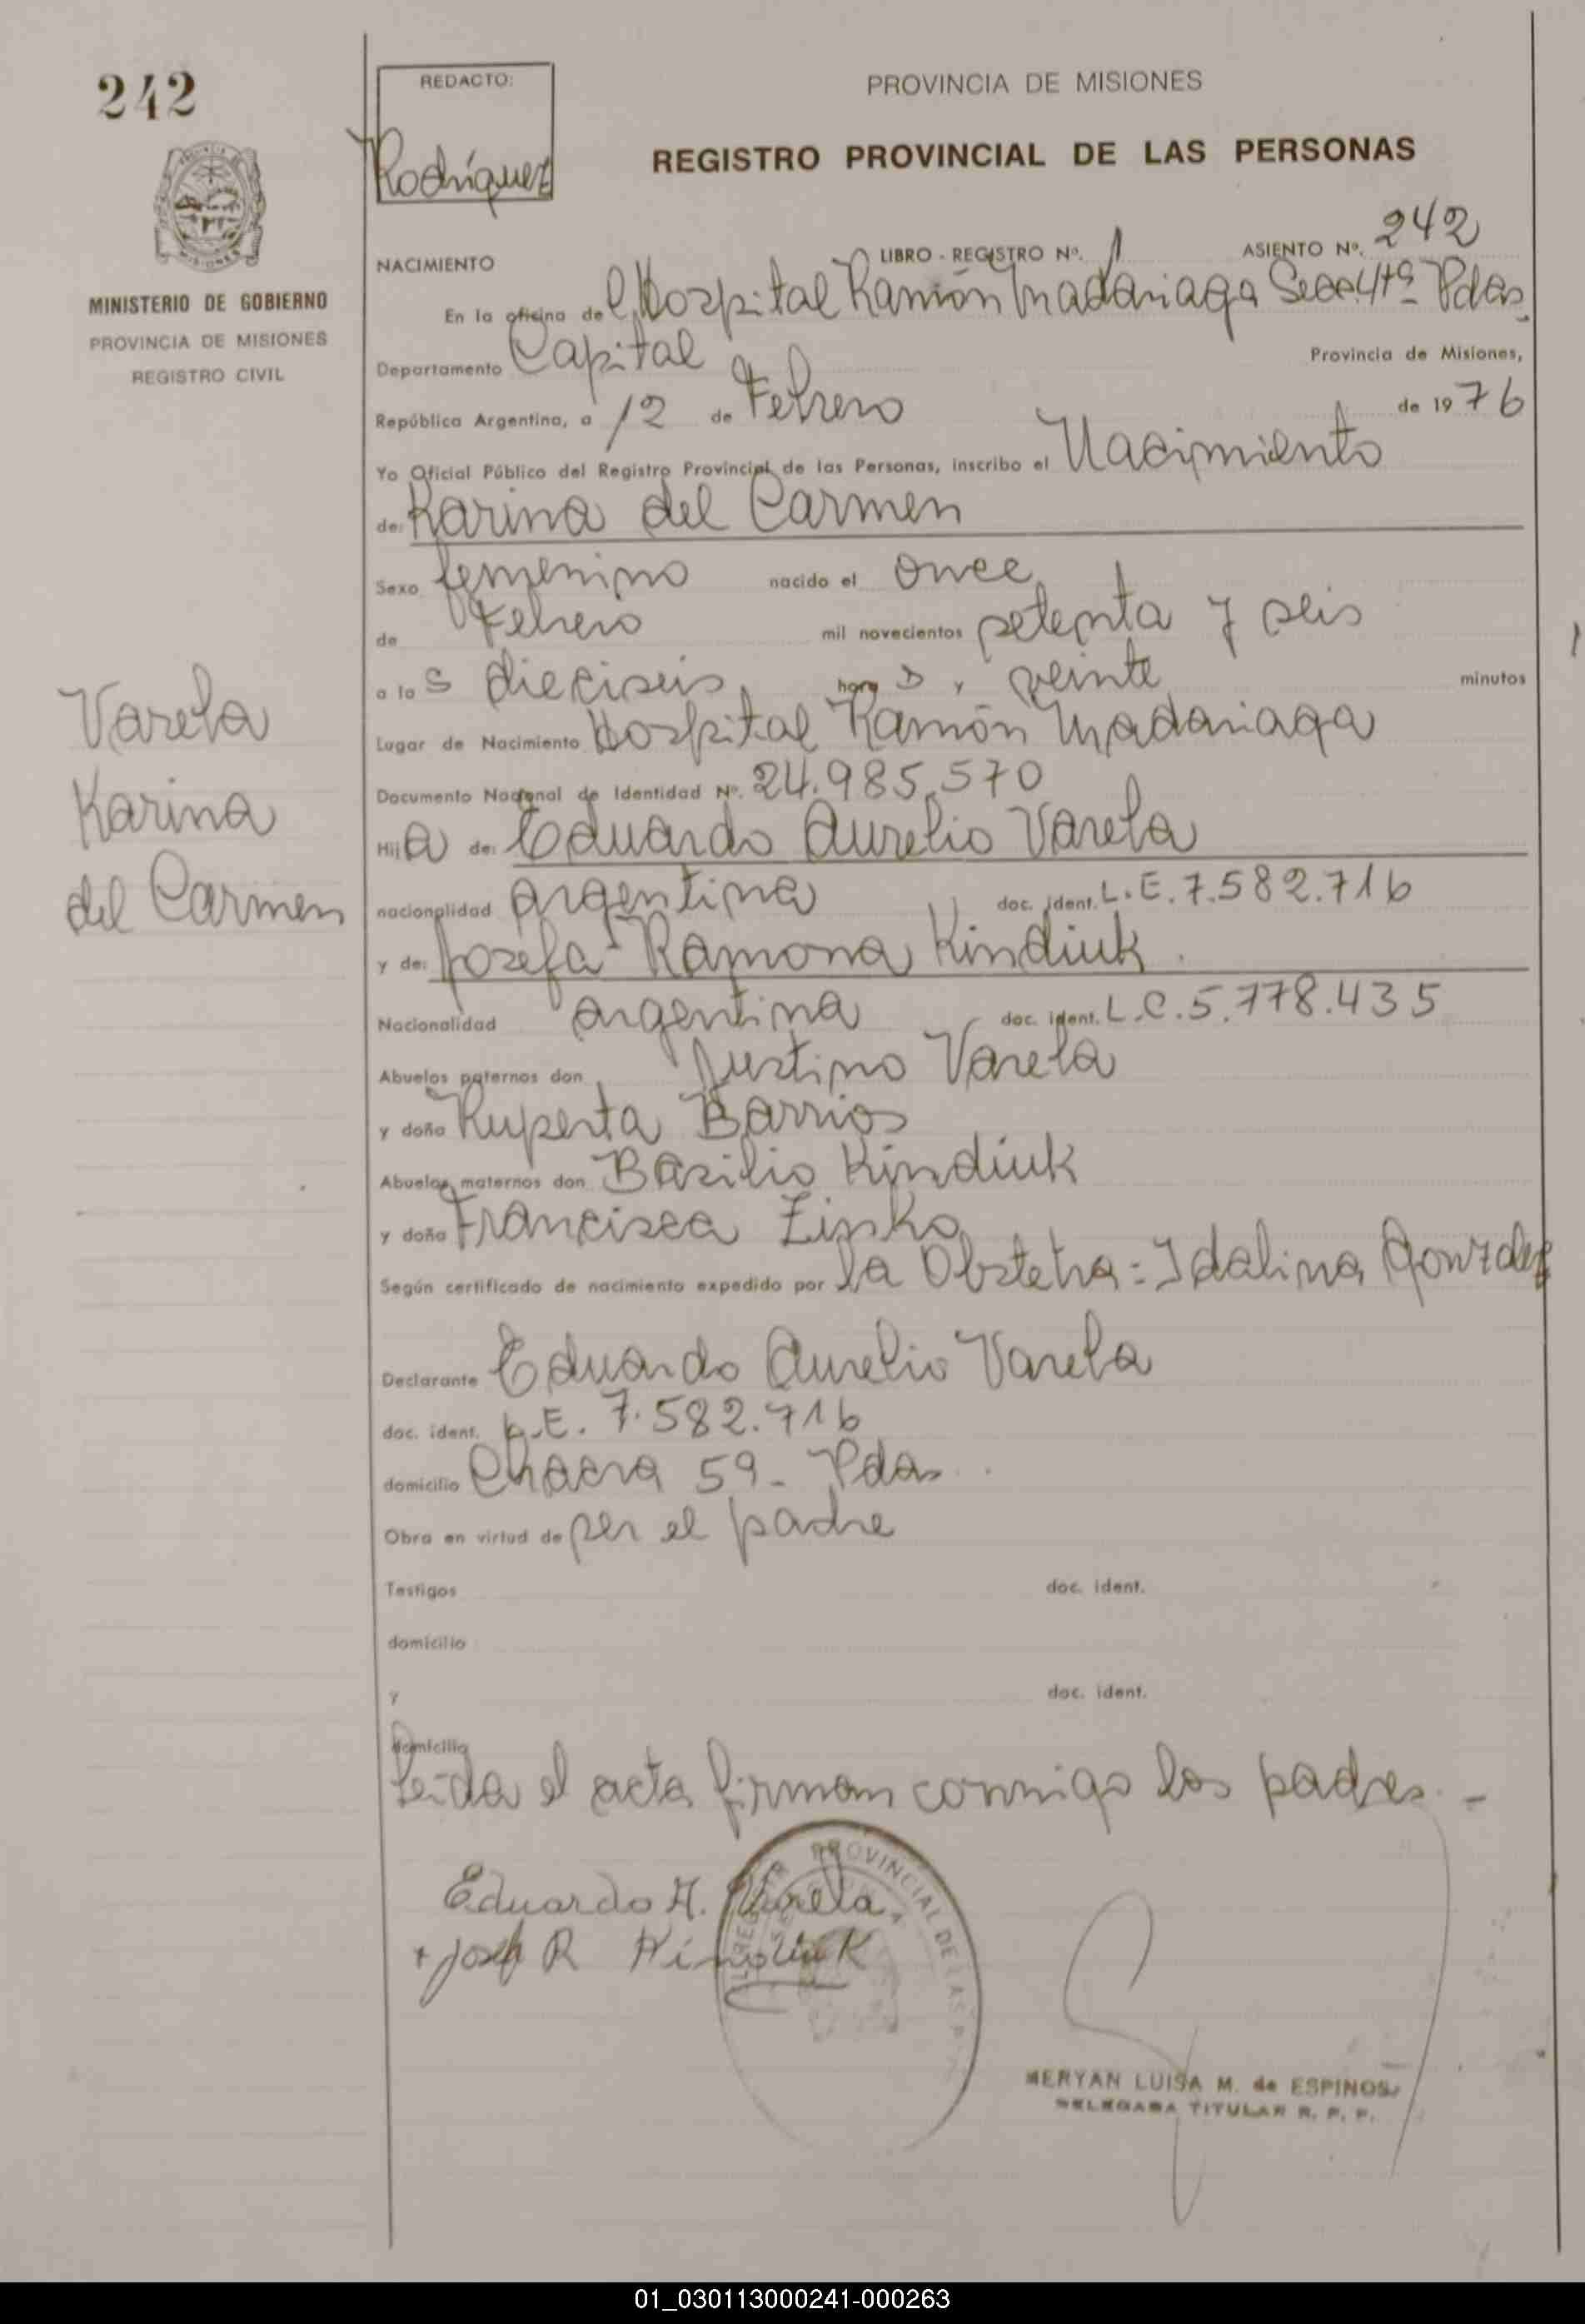 242
REDACTO:
Rodríguez
PROVINCIA DE MISIONES
REGISTRO PROVINCIAL DE LAS PERSONAS
MINISTERIO DE GOBIERNO
PROVINCIA DE MISIONES
REGISTRO CIVIL
NACIMIENTO LIBRO - REGISTRO Nº. 1 ASIENTO Nº. 242
En la oficina del Hospital Ramón Madariaga Secc. 4ta Pdas.
Departamento Capital Provincia de Misiones,
República Argentina, a 12 de Febrero de 1976
Yo Oficial Público del Registro Provincial de las Personas, inscribo el Nacimiento
de: Karina del Carmen
Sexo femenino nacido el once
de Febrero mil novecientos setenta y seis
a las dieciseis hora s y veinte minutos
Lugar de Nacimiento Hospital Ramón Madariaga
Documento Nacional de Identidad Nº. 24.985.570
Hija de: Eduardo Aurelio Varela
nacionalidad argentina doc. ident. L.E. 7.582.716
y de: Josefa Ramona Kindiuk.
Nacionalidad argentina doc. ident. L.C. 5.778.435
Abuelos paternos don Justino Varela
y doña Ruperta Barrios
Abuelos maternos don Basilio Kindiuk
y doña Francisca Zinko
Según certificado de nacimiento expedido por la Obstetra: Idalina Gonzalez
Declarante Eduardo Aurelio Varela
doc. ident. L.E. 7.582.716
domicilio Chacra 59 - Pdas.
Obra en virtud de ser el padre
Testigos doc. ident.
domicilio
y doc. ident.
domicilio
Leída el acta firman conmigo los padres. -
Varela
Karina
del Carmen
Eduardo A. Varela
Josefa R Kindiuk
PROVINCIAL DE LAS P
MERYAN LUISA M. de ESPINOSA
DELEGADA TITULAR R. P. P.
01_030113000241-000263